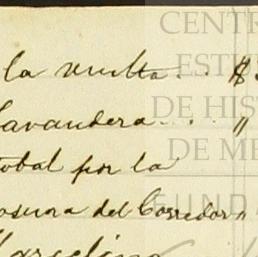 la vuelta . . $
Lavandera . . . "
tobal por la
osura del Corredor "
Marcelino
CENTR
EST
DE HIS
DE ME
FUND